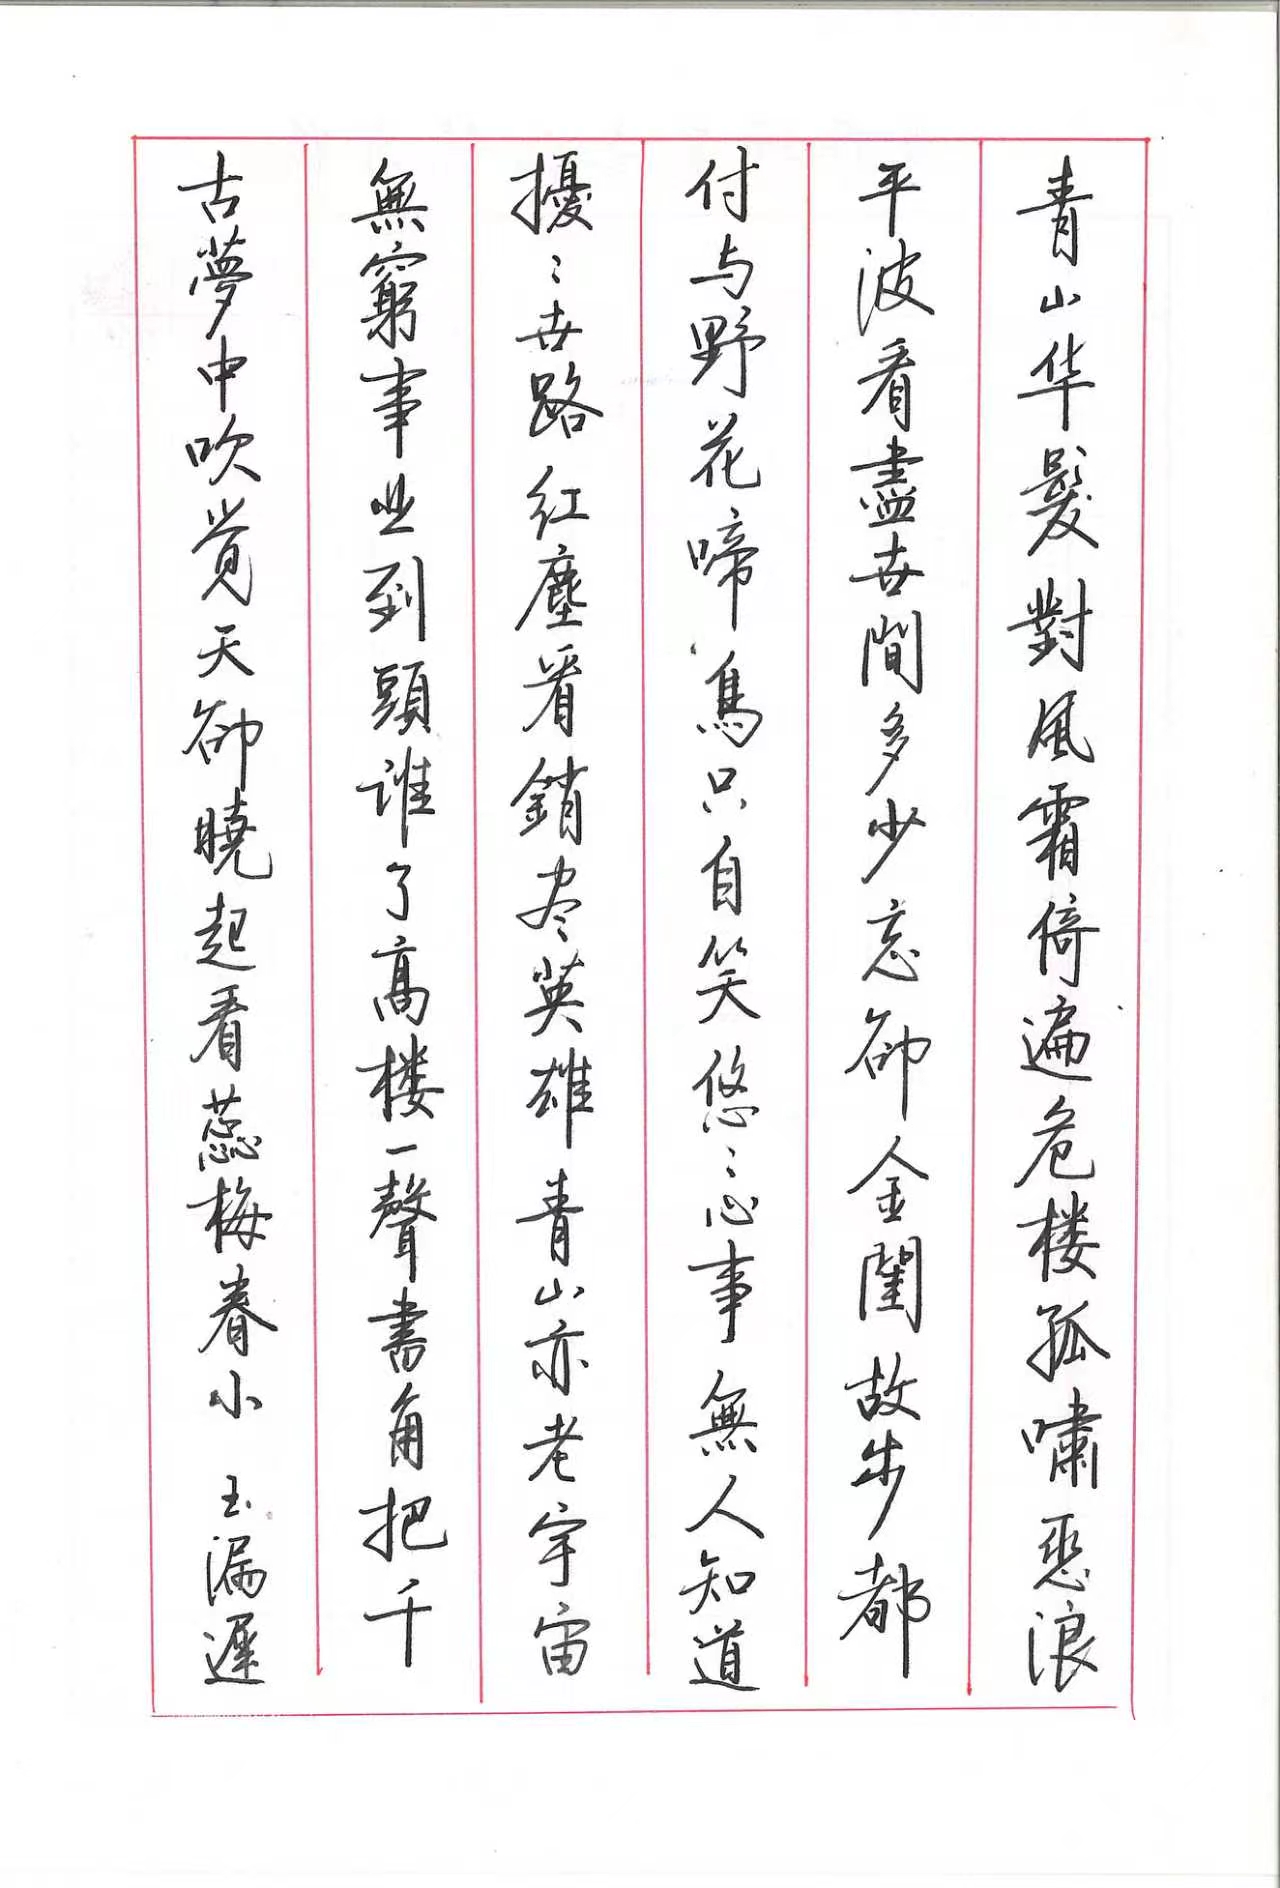 青山华髮對風霜倚遍危楼孤嘯惡浪
平波看盡世間多少忘卻金閨故步都
付与野花啼鳥只自笑悠〻心事無人知道
擾〻世路红塵看銷尽英雄青山亦老宇宙
無窮事业到頭谁了高楼一聲畫角把千
古夢中吹覚天卻曉起看蕊梅春小 玉漏遲